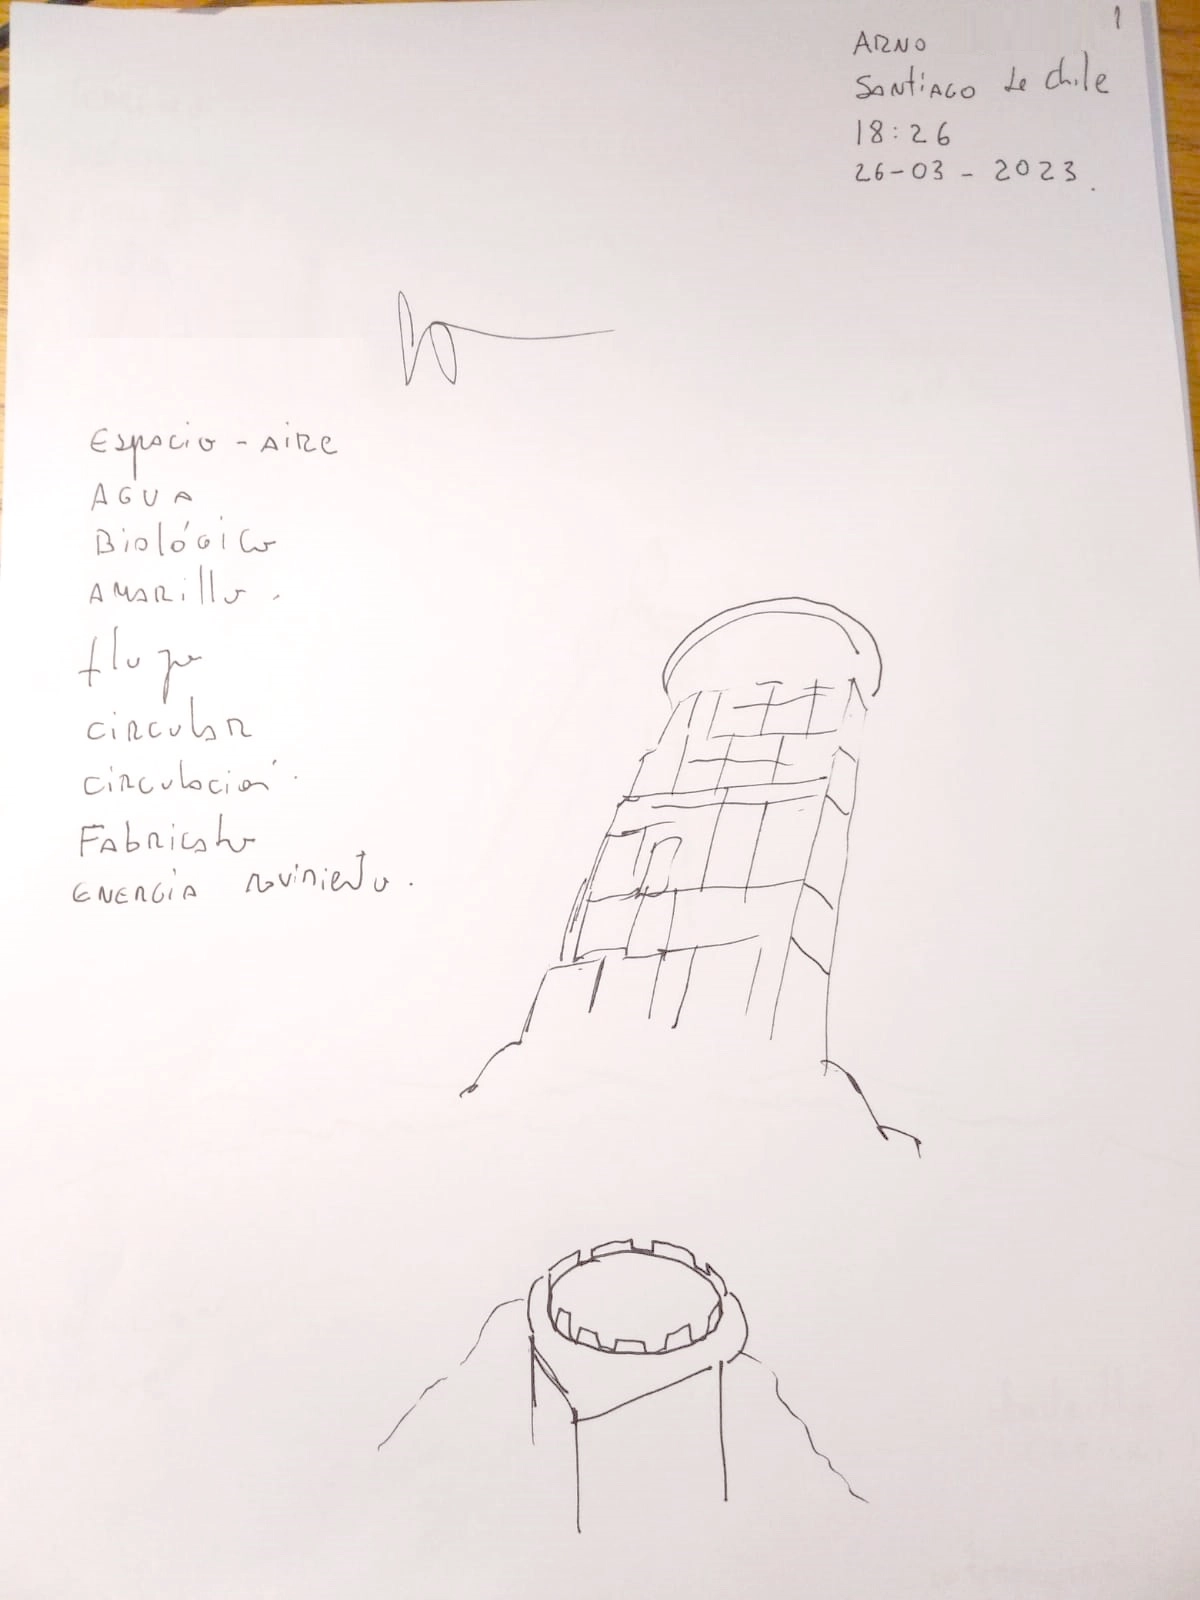 1
ARNO
Santiago de Chile
18:26
26-03-2023.
Espacio - aire
AGUA
Biológico
AMARillo.
flujo
circular
circulación.
Fabricato
ENERGÍA movimiento.